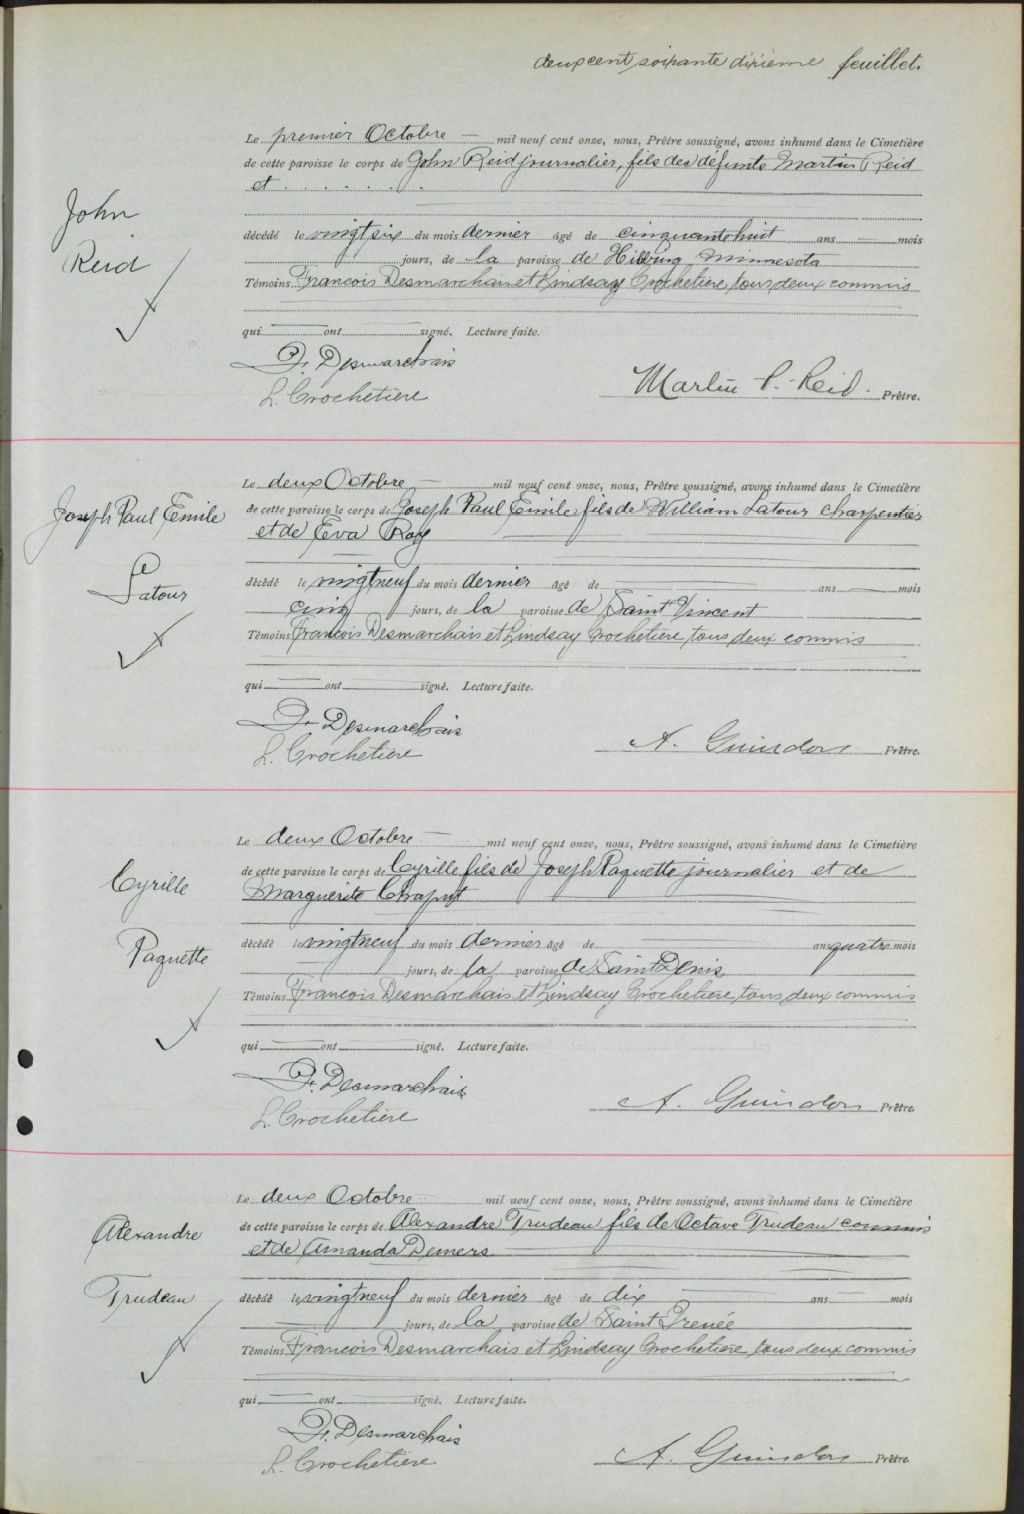 deux cent soixante dixième feuillet.
Le premier Octobre — mil neuf cent onze, nous, Prêtre soussigné, avons inhumé dans le Cimetière
de cette paroisse le corps de John Reid journalier, fils des défunts Martin Reid
et . . . . . . .
John
Reid
décédé le vingt six du mois dernier âgé de cinquante huit ans — mois
jours, de la paroisse de Hibbing Minnesota
Témoins Francois Desmarchais et Lindsay Crochetiere, tous deux commis
qui — ont — signé. Lecture faite.
Fr. Desmarchais
L. Crochetiere
Martin P. Reid. Prêtre.
Le deux Octobre — mil neuf cent onze, nous, Prêtre soussigné, avons inhumé dans le Cimetière
Joseph Paul Emile
Latour
de cette paroisse le corps de Joseph Paul Emile fils de William Latour charpentier
et de Eva Roy
décédé le vingt neuf du mois dernier âgé de — ans — mois
cinq jours, de la paroisse de Saint Vincent
Témoins Francois Desmarchais et Lindsay Crochetiere, tous deux commis
qui — ont — signé. Lecture faite.
Fr. Desmarchais
L. Crochetiere
A. Guindon Prêtre.
Le deux Octobre — mil neuf cent onze, nous, Prêtre soussigné, avons inhumé dans le Cimetière
Cyrille
Paquette
de cette paroisse le corps de Cyrille fils de Joseph Paquette journalier et de
Marguerite Chaput
décédé le vingt neuf du mois dernier âgé de — ans quatre mois
jours, de la paroisse de Saint Denis
Témoins Francois Desmarchais et Lindsay Crochetiere, tous deux commis
qui — ont — signé. Lecture faite.
Fr. Desmarchais
L. Crochetiere
A. Guindon Prêtre.
Le deux Octobre mil neuf cent onze, nous, Prêtre soussigné, avons inhumé dans le Cimetière
Alexandre
Trudeau
de cette paroisse le corps de Alexandre Trudeau fils de Octave Trudeau commis
et de Amanda Demers
décédé le vingt neuf du mois dernier âgé de dix — ans — mois
jours, de la paroisse de Saint Irenée
Témoins Francois Desmarchais et Lindsay Crochetiere, tous deux commis
qui — ont — signé. Lecture faite.
Fr. Desmarchais
L. Crochetiere
A. Guindon Prêtre.